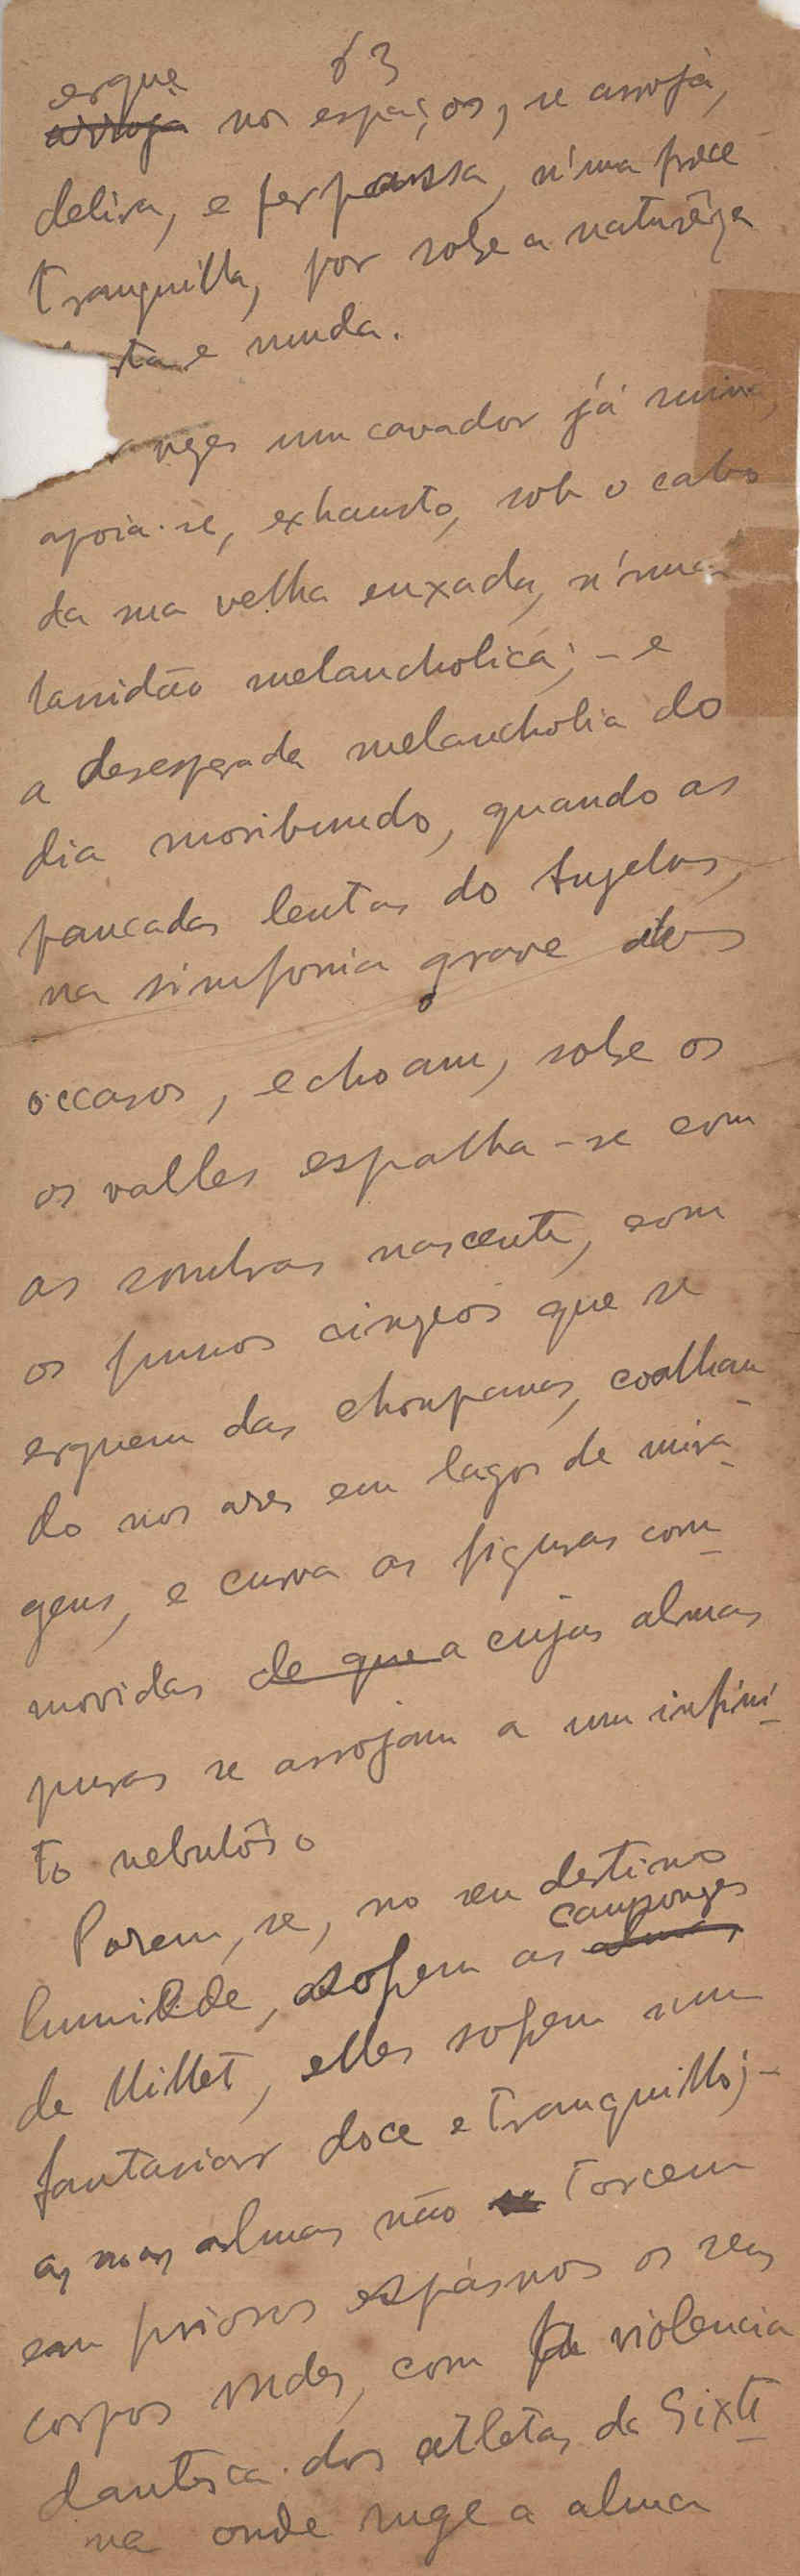 63
ergue
arroja nos espaços, se arroja,
delira, e perpassa, n'uma prece
tranquilla, por sobre a naturêza
e muda.
um cavador já
apoia-se, exhausto, sob o cabo
da sua velha enxada, n'uma
lassidão melancholica; - e
a desesperada melancholia do
dia moribundo, quando as
pancadas lentas do Angelus,
na simfonia grave dos
occasos, echoam, sobre os
os valles espalha-se com
as sombras nascente, com
os fumos que se
erguem das choupanas, coalhan-
do nos ares em lagos de mira-
gens, e curva as figuras com-
movidas de que a cujas almas
puras se arrojam a um infini-
to nebulôso
Porem, se, no seu destino
camponezes
humilde, sofrem as almas
de Millet, elles sofrem num
fantasiar doce e tranquillo; -
as suas almas não se torcem
em furiosos espásmos os seus
corpos rudes, com a violencia
dantesca dos atletas da Sixti-
na onde ruge a alma